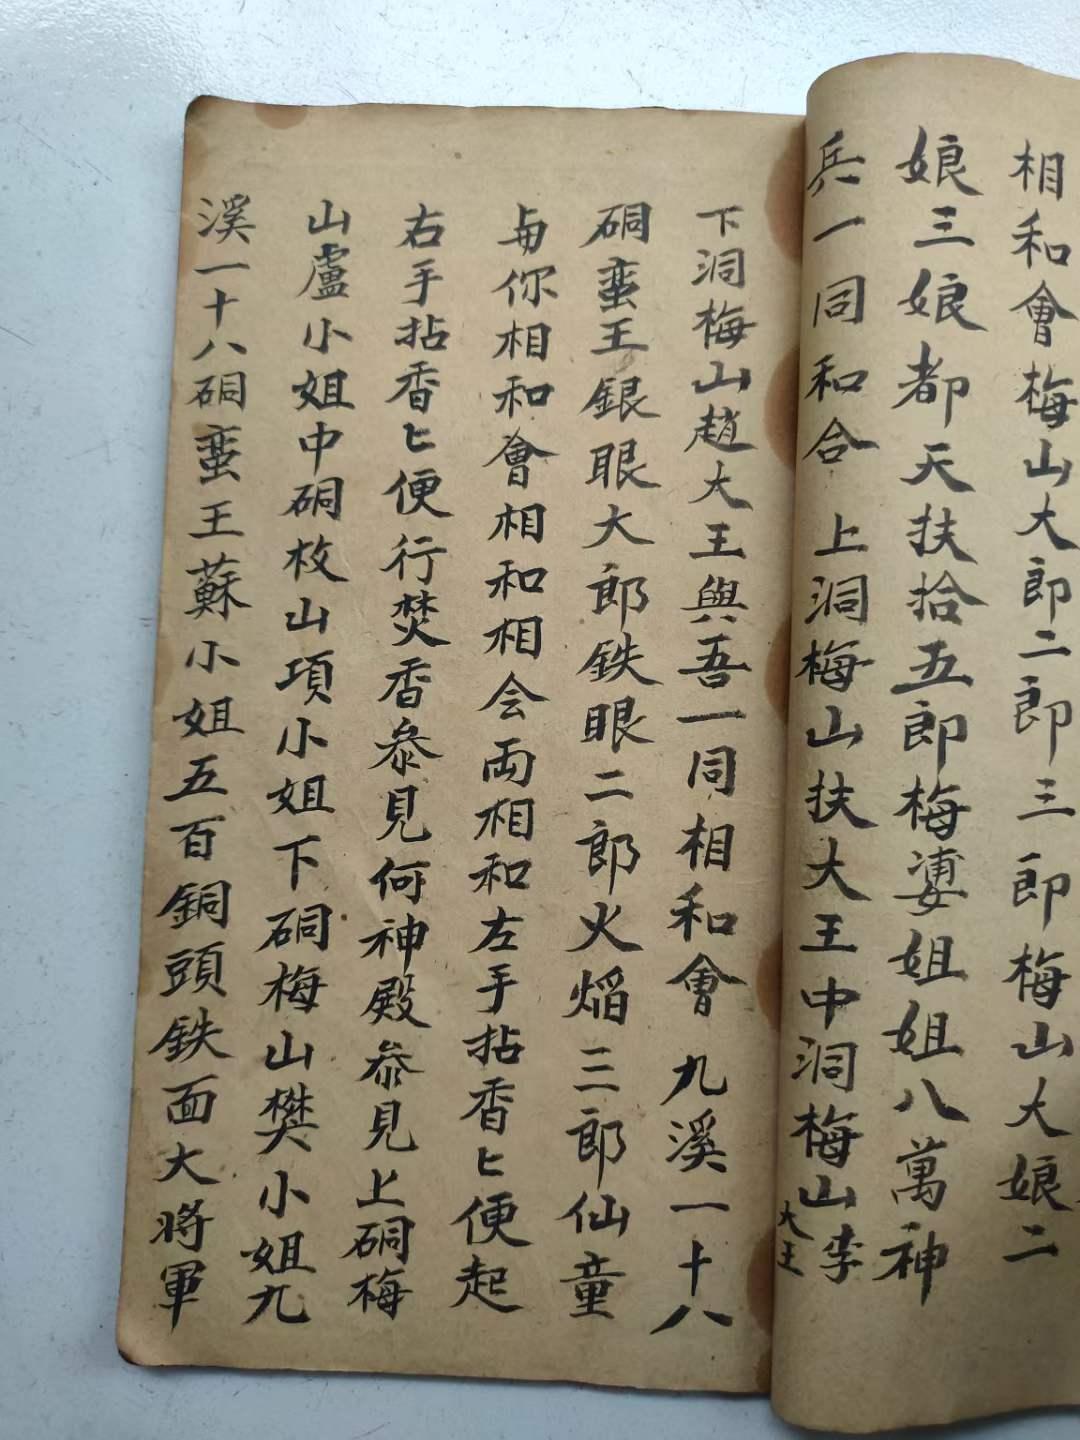 相和會梅山大郎二郎三郎梅山大娘二
娘三娘都天扶拾五郎梅婆姐姐八萬神
兵一同和合 上洞梅山扶大王中洞梅山李
大王
下洞梅山趙大王與吾一同相和會 九溪一十八
硐蛮王銀眼大郎鉄眼二郎火焰三郎仙童
与你相和會相和相会両相和左手拈香匕便起
右手拈香匕便行焚香叅見何神殿叅見上硐梅
山盧小姐中硐枚山項小姐下硐梅山樊小姐九
溪一十八硐蛮王蘇小姐五百銅頭鉄面大將軍